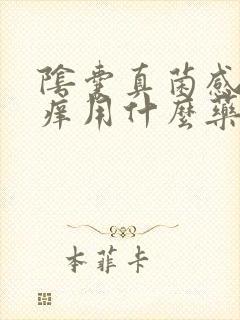 陰囊真菌感
癢用什麼藥
本菲卡